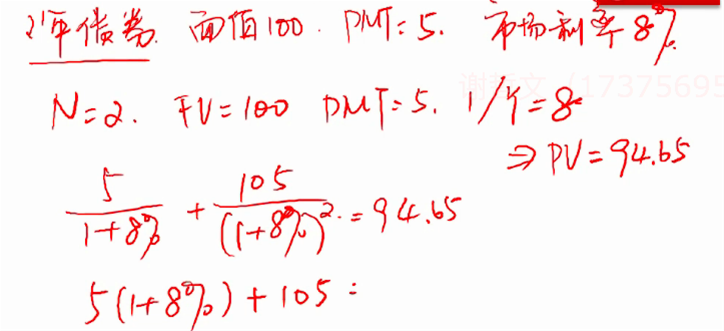 2年债券. 面值100. PMT=5. 市场利率8%
N=2. FV=100 PMT=5. I/Y=8
⇒ PV=94.65
5/(1+8%) + 105/(1+8%)². = 94.65
5(1+8%)+105=